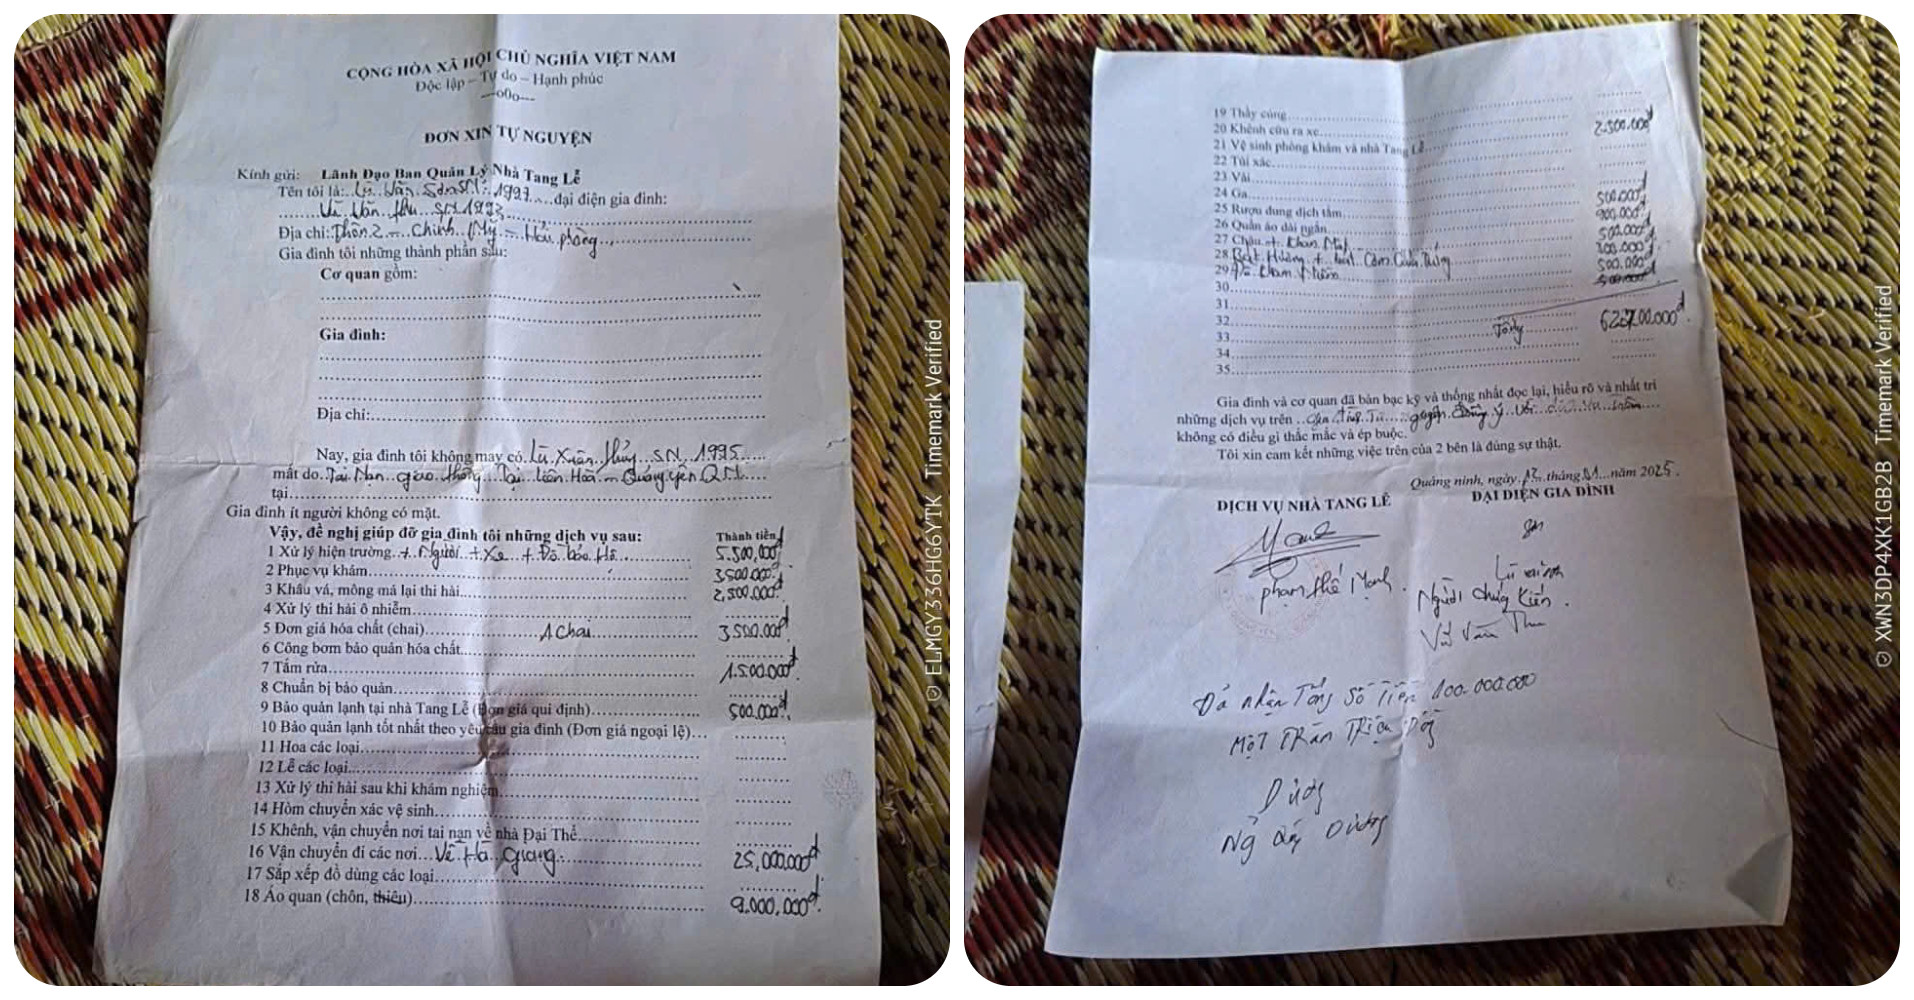 CỘNG HÒA XÃ HỘI CHỦ NGHĨA VIỆT NAM
Độc lập – Tự do – Hạnh phúc
---o0o---
ĐƠN XIN TỰ NGUYỆN
Kính gửi: Lãnh Đạo Ban Quản Lý Nhà Tang Lễ
Tên tôi là: Lù Văn Sơn SN: 1997 đại diện gia đình:
Vũ Văn Thu SN 1993
Địa chỉ: Thôn 2 – Chính Mỹ – Hải phòng
Gia đình tôi những thành phần sau:
Cơ quan gồm:
Gia đình:
Địa chỉ:
Nay, gia đình tôi không may có Lù Xuân Thủy SN 1995
mất do Tai Nạn giao thông Tại Liên Hòa – Quảng yên QN
tại
Gia đình ít người không có mặt.
Vậy, đề nghị giúp đỡ gia đình tôi những dịch vụ sau: Thành tiền
1 Xử lý hiện trường + Người + Xe + Đồ bảo Hộ 5.500.000đ
2 Phục vụ khám 3.500.000đ
3 Khâu vá, mông má lại thi hài 2.500.000đ
4 Xử lý thi hài ô nhiễm
5 Đơn giá hóa chất (chai) 1 Chai 3.500.000đ
6 Công bơm bảo quản hóa chất
7 Tắm rửa 1.500.000đ
8 Chuẩn bị bảo quản
9 Bảo quản lạnh tại nhà Tang Lễ (Đơn giá qui định) 500.000đ
10 Bảo quản lạnh tốt nhất theo yêu cầu gia đình (Đơn giá ngoại lệ)
11 Hoa các loại
12 Lễ các loại
13 Xử lý thi hài sau khi khám nghiệm
14 Hòm chuyển xác vệ sinh
15 Khênh, vận chuyển nơi tai nạn về nhà Đại Thể
16 Vận chuyển đi các nơi Về Hà Giang 25,000.000đ
17 Sắp xếp đồ dùng các loại
18 Áo quan (chôn, thiêu) 9.000.000đ
ELMGY336HG6YTK Timemark Verified
19 Thầy cúng
20 Khênh cữu ra xe 2.500.000đ
21 Vệ sinh phòng khám và nhà Tang Lễ
22 Túi xác
23 Vải
24 Ga 500.000đ
25 Rượu dung dịch tắm 900.000đ
26 Quần áo dài ngắn 500.000đ
27 Chậu + Khăn Mặt 300.000đ
28 Bát Hương + bát Cơm 500.000đ
29
30
31
32 Tổng
33
34
35
Gia đình và cơ quan đã bàn bạc kỹ và thống nhất đọc lại, hiểu rõ và nhất trí
những dịch vụ trên đồng ý với
không có điều gì thắc mắc và ép buộc.
Tôi xin cam kết những việc trên của 2 bên là đúng sự thật.
Quảng ninh, ngày 12 tháng 01 năm 2025.
DỊCH VỤ NHÀ TANG LỄ ĐẠI DIỆN GIA ĐÌNH
phạm thế Mạnh
Người chứng Kiến
Vũ Văn Thu
Đã nhận Tổng Số Tiền 100.000.000
MộT Trăm Triệu Đồng
XWN3DP4XK1GB2B Timemark Verified